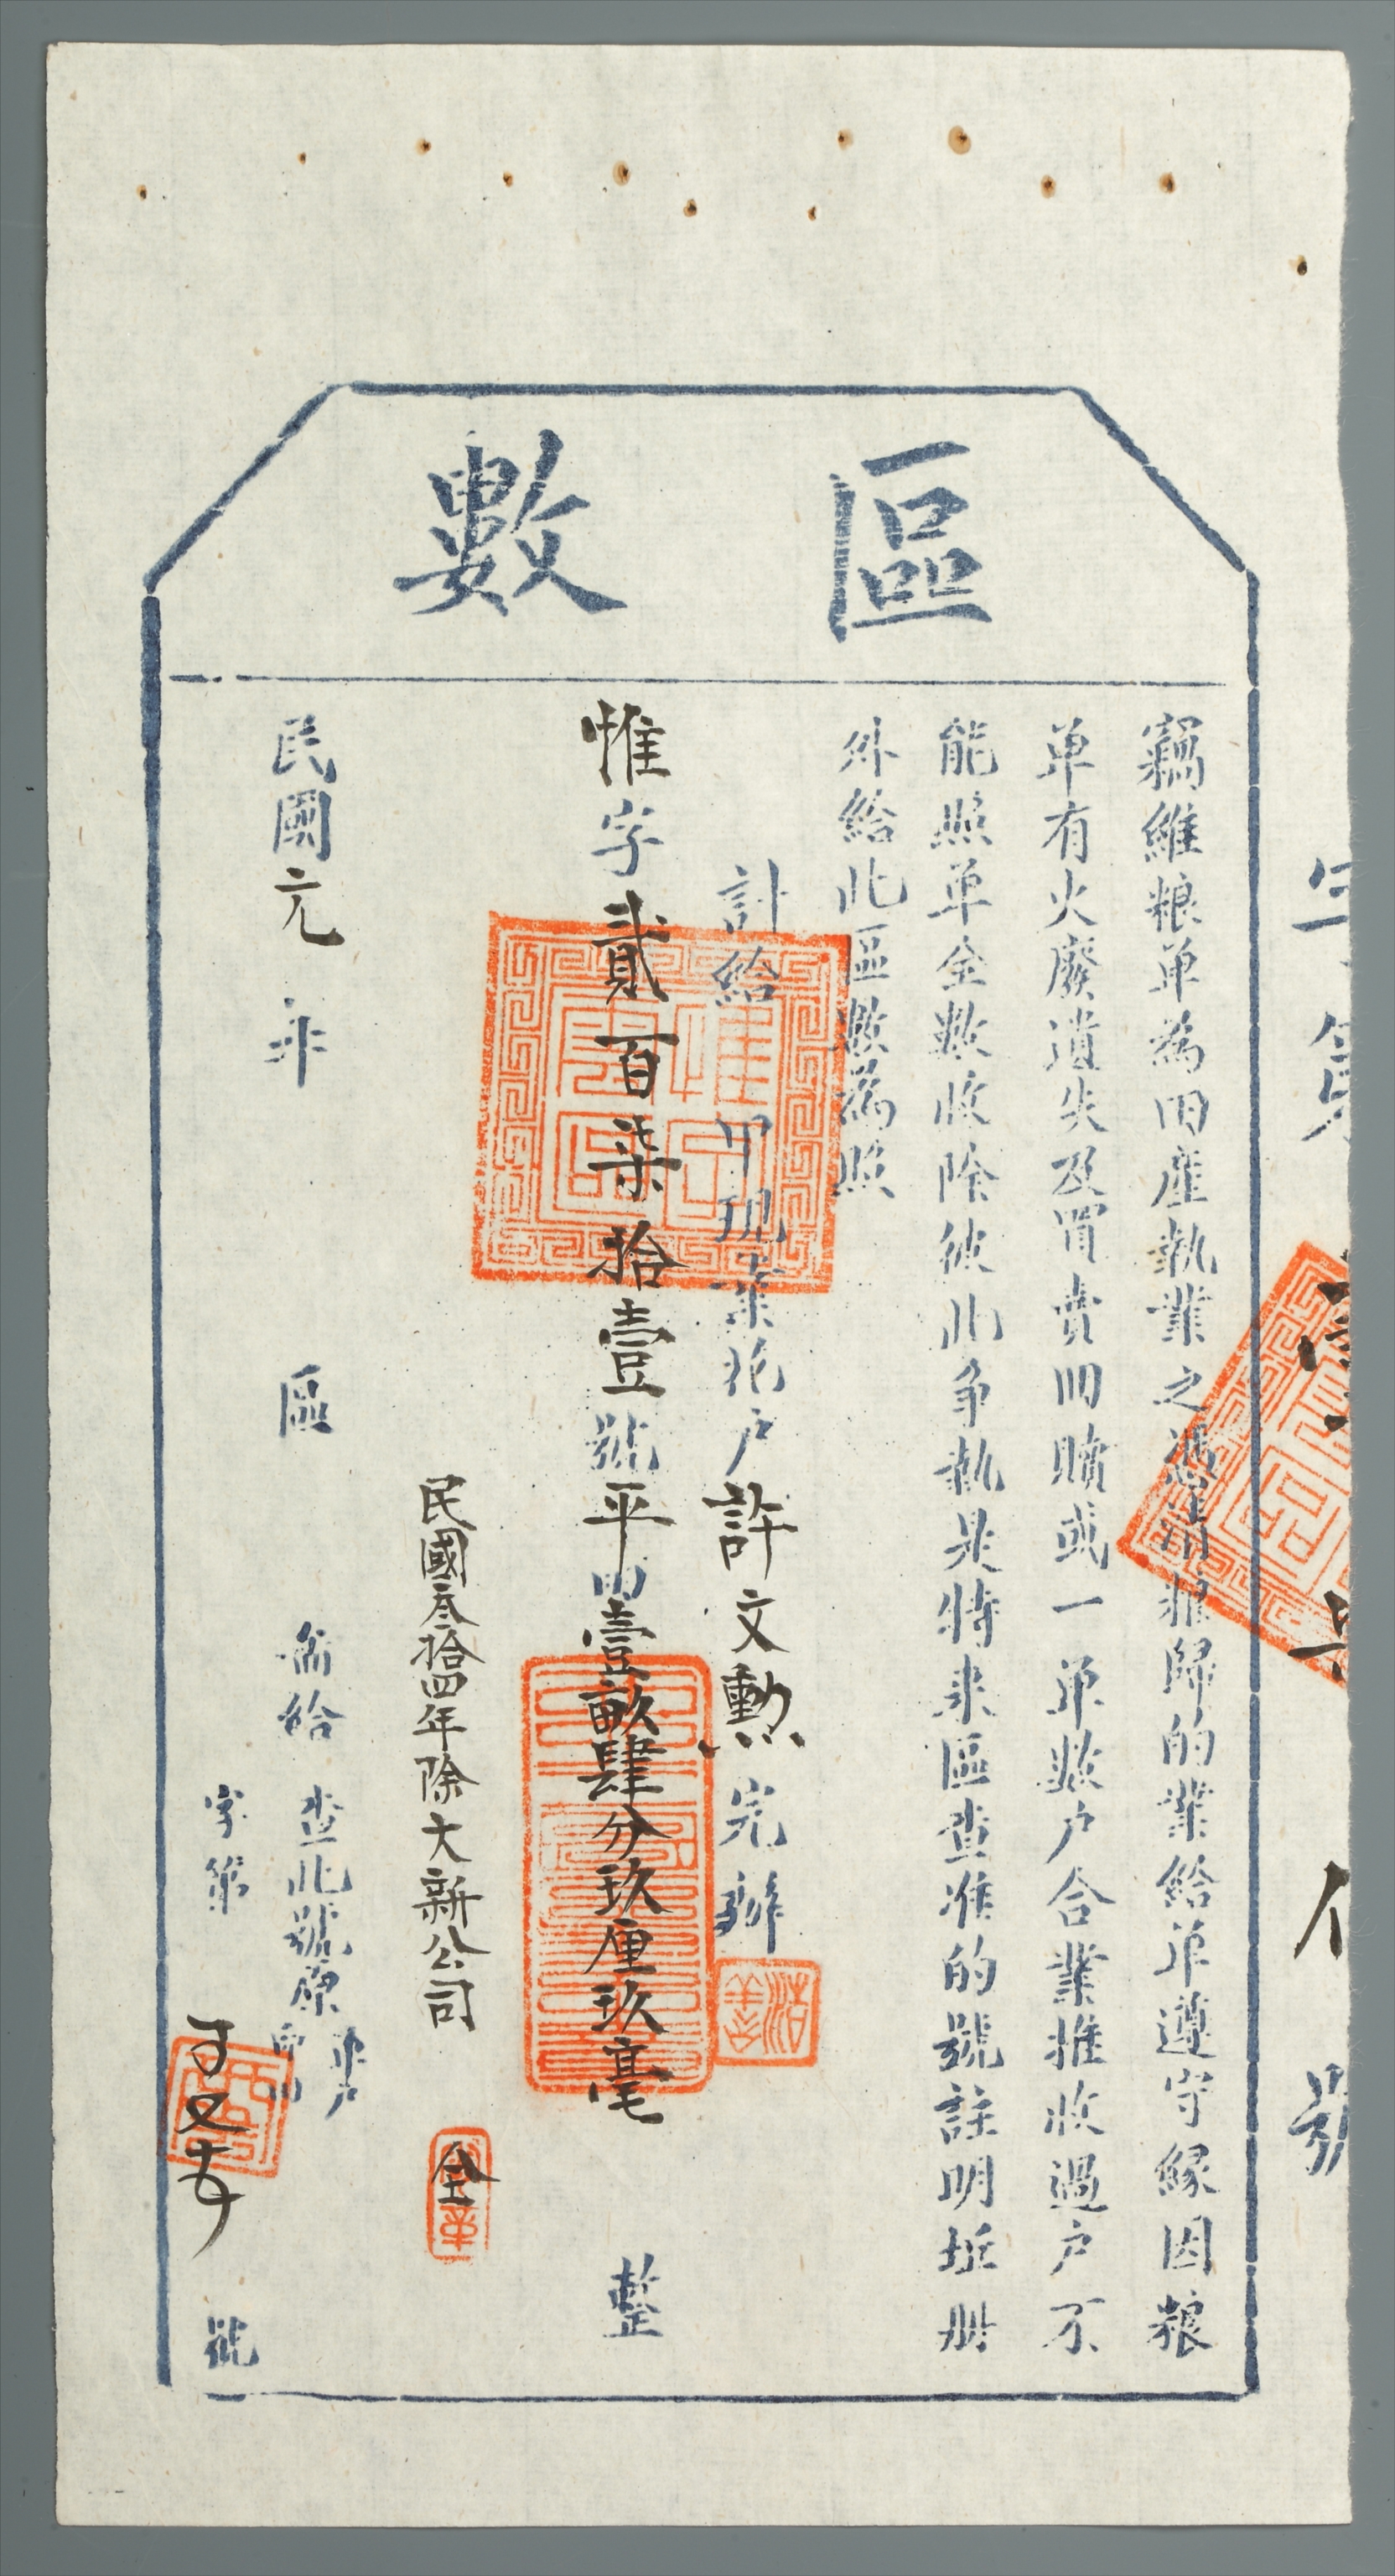 區數
竊維粮单為田產執業之憑清糧歸的業給单遵守緣因粮
单有火廢遺失及買賣回贖或一单數户合業推收過户不
能照单全數收除彼此争執是特来區查准的號註明坵册
外給此區數為照
計給 甲現業花户許文勲完辦
惟字貳百柒拾壹號平田壹畝肆分玖厘玖毫 整
民國叁拾四年除大新公司 全
民國元年 區 給 查此號原单户
字第 號